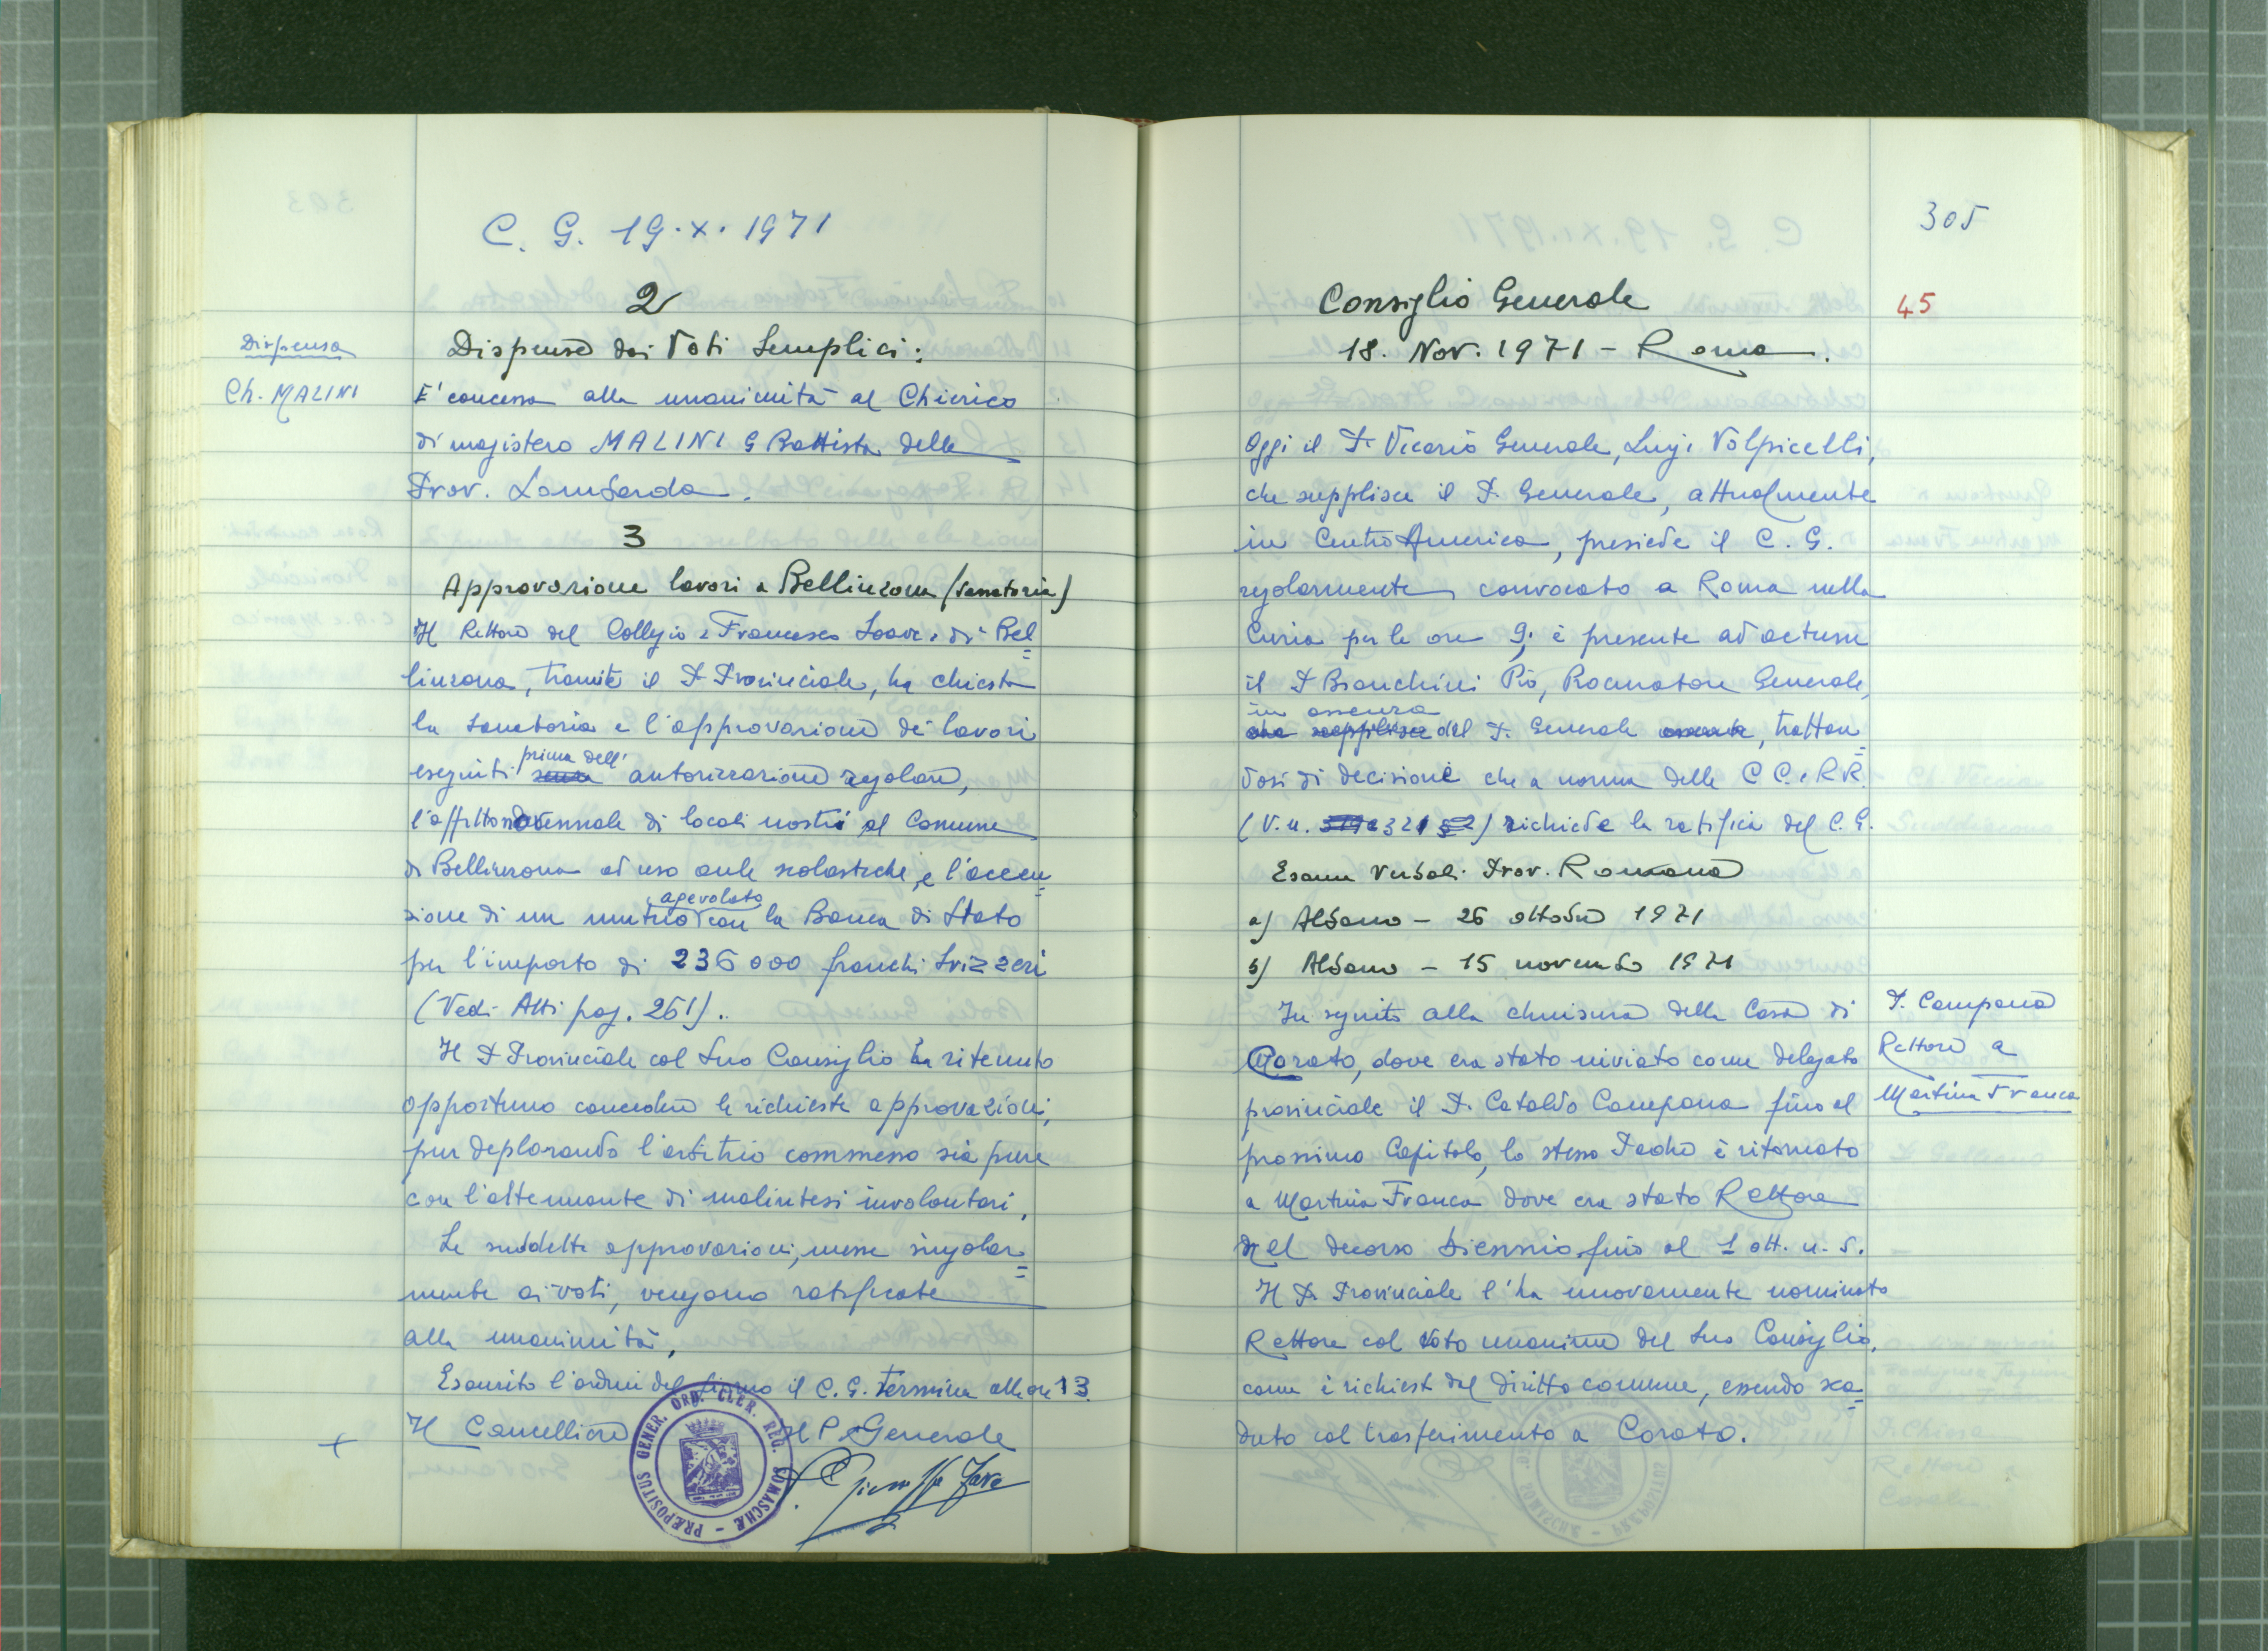 C. G. 19.X.1971
2
Dispensa
Dispense dai Voti Semplici:
Ch. MALINI
E' concessa alla unanimità al Chierico
di magistero MALINI G Battista della
Prov. Lombarda.
3
Approvazione lavori a Bellinzona (sanatoria)
Il Rettore del Collegio "Francesco Soave" di Bel=
linzona, tramite il P. Provinciale, ha chiesto
la sanatoria e l'approvazione dei lavori
eseguiti prima dell' autorizzazione regolare,
l'affitto novennale di locali nostri al Comune
di Bellinzona ad uso aule scolastiche, e l'accen=
sione di un mutuo agevolato con la Banca di Stato
per l'importo di 236000 franchi svizzeri
(Vedi Atti pag. 261).
Il P. Provinciale col Suo Consiglio ha ritenuto
opportuno concedere le richieste approvazioni,
pur deplorando l'arbitrio commesso sia pure
con l'attenuante di malintesi involontari.
Le suddette approvazioni, messe singolar=
mente ai voti, vengono ratificate
alla unanimità.
Esaurito l'ordine del giorno il C. G. termina alle ore 13.
Il Cancelliere Il P. Generale
PRÆPOSITUS GENER. ORD. CLER. REG. SOMASCHÆ
305
Consiglio Generale
45
18. Nov. 1971 - Roma.
Oggi il P. Vicario Generale, Luigi Volpicelli,
che supplisce il P. Generale, attualmente
in Centro America, presiede il C. G.
regolarmente convocato a Roma nella
Curia per le ore 9; è presente ad actum
il P. Bianchini Pio, Procuratore Generale,
in assenza
che supplisce del P. Generale assente, trattan=
dosi di decisione che a norma delle CC. e RR.
(V. n. 321) richiede la ratifica del C. G.
Esame Verbali Prov. Romana
a) Albano - 26 ottobre 1971
b) Albano - 15 novembre 1971
In seguito alla chiusura della Casa di
Corato, dove era stato inviato come delegato
provinciale il P. Cataldo Campana fino al
prossimo Capitolo, lo stesso Padre è ritornato
a Martina Franca dove era stato Rettore
nel decorso biennio fino al 1 ott. u. s.
Il P. Provinciale l'ha nuovamente nominato
Rettore col voto unanime del Suo Consiglio,
come è richiesto dal diritto comune, essendo sca=
duto col trasferimento a Corato.
P. Campana
Rettore a
Martina Franca